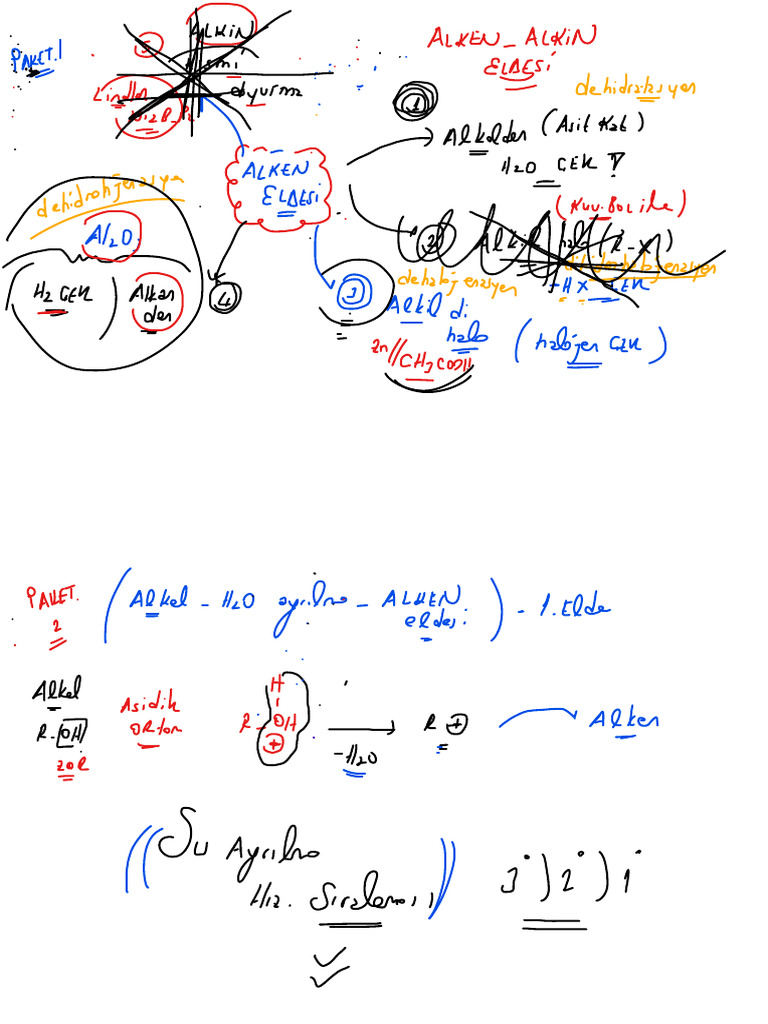 PAKET.1
5
ALKİN
Lindlar
doyurma
ALKEN - ALKİN
ELDESİ
dehidratasyon
1
Alkolden (Asit Kat)
H2O ÇEK
ALKEN
ELDESİ
dehidrohjenasyon
Al2O
H2 ÇEK
Alkan
den
4
(Kuv. Baz ile)
2
Alkil halo (R-X)
-HX ÇEK
3
dehalojenasyon
Alkil di
halo
(halojen ÇEK)
Zn//CH3COOH
PAKET.
2
(Alkol - H2O ayrılma - ALKEN
eldesi) - 1. Elde
Alkol
R-OH
ZOR
Asidik
ORtam
H
R-OH
+
-H2O
R +
Alken
((Su Ayrılma
Hız. Sıralaması))
3° > 2° > 1°